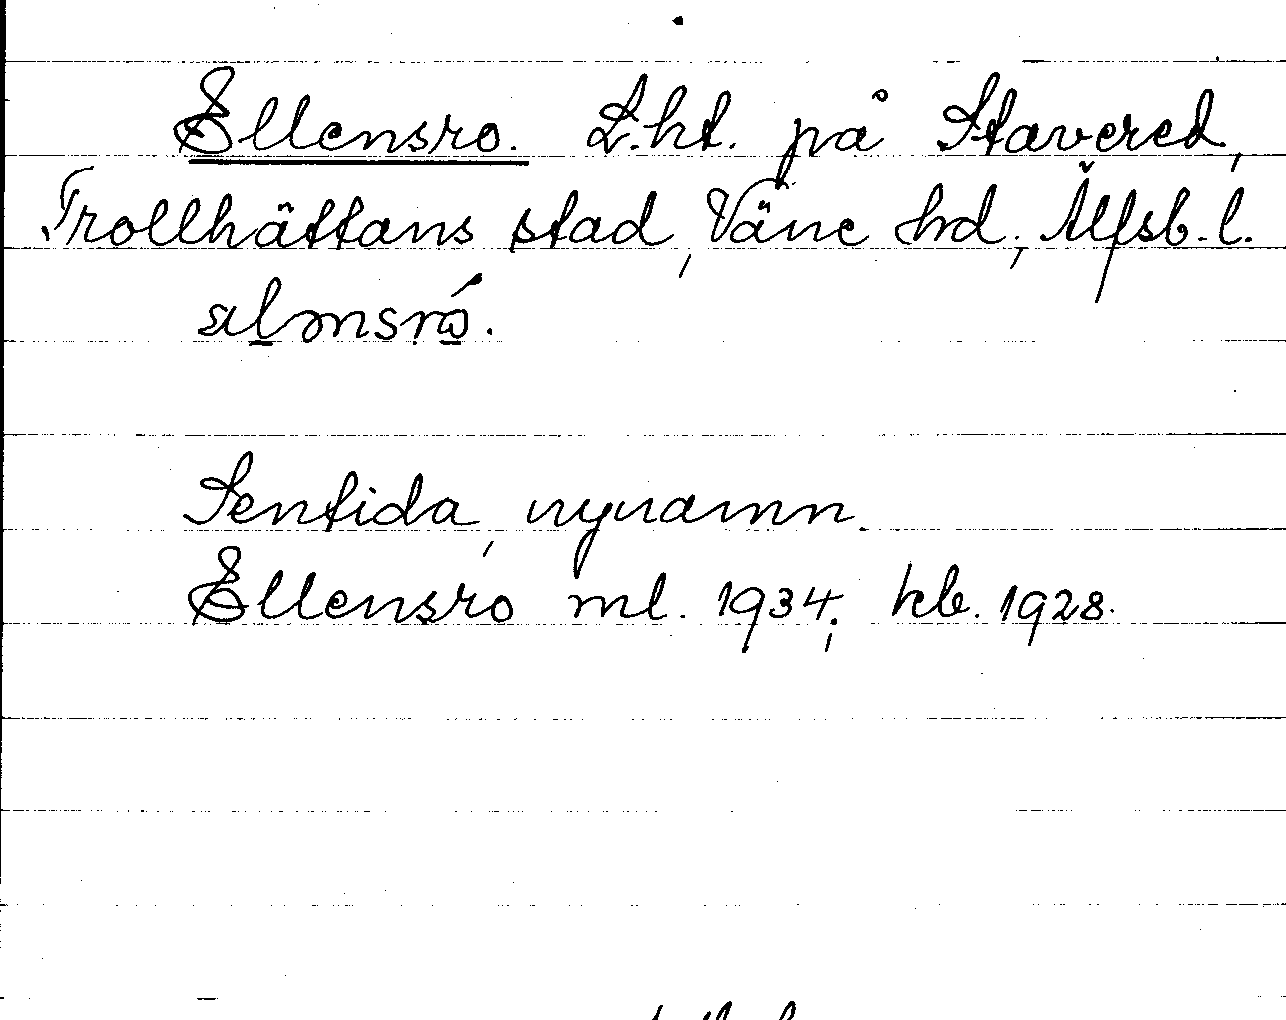 Ellensro. L.ht. på Stavered,
Trollhättans stad, Väne hd, Älfsb. l.
Sentida, nynamn.
Ellensro ml. 1934; kb. 1928.